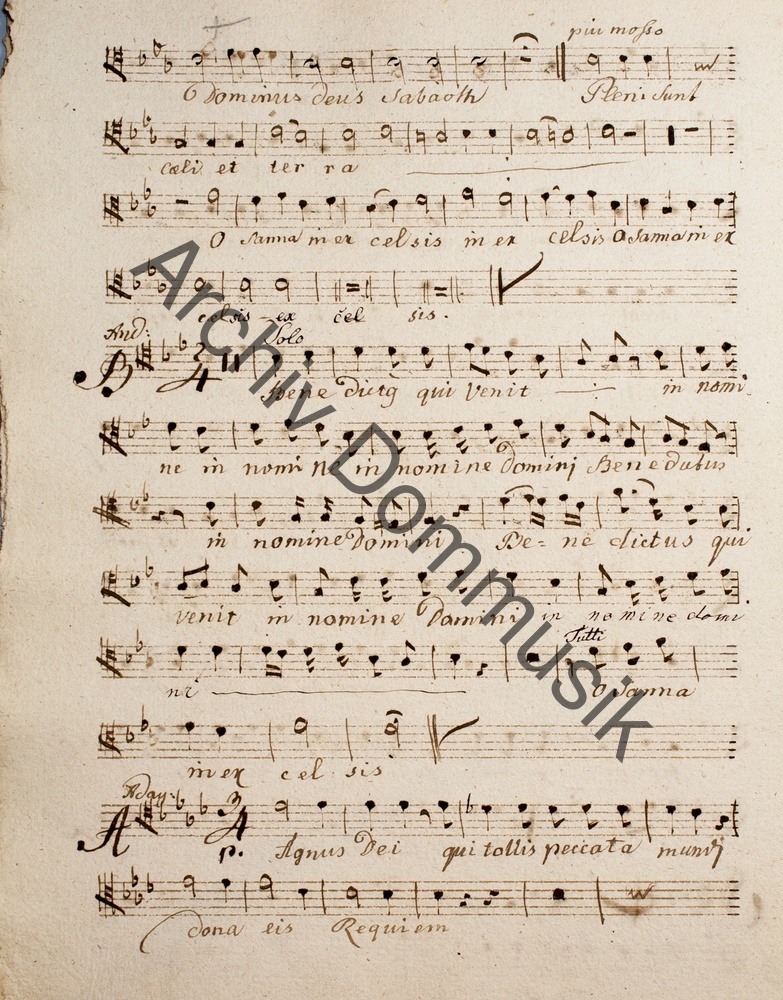 piu mosso
Dominus deus Sabaoth Pleni sunt
cœli et ter ra
O sanna in ex celsis in ex celsis O sanna in ex
celsis ex cel sis.
And:
Solo
B
2/4
Bene dictg qui Venit in nomi
ne in nomi ne in nomine Domini Benedictus
in nomine Domini Be = ne dictus qui
venit in nomine Domini in nomine domi
Tutti
ni O sanna
in ex cel sis
Aday:
A
3/4
p. Agnus Dei qui tollis peccata mundj
dona eis Requiem
Archiv Dommusik